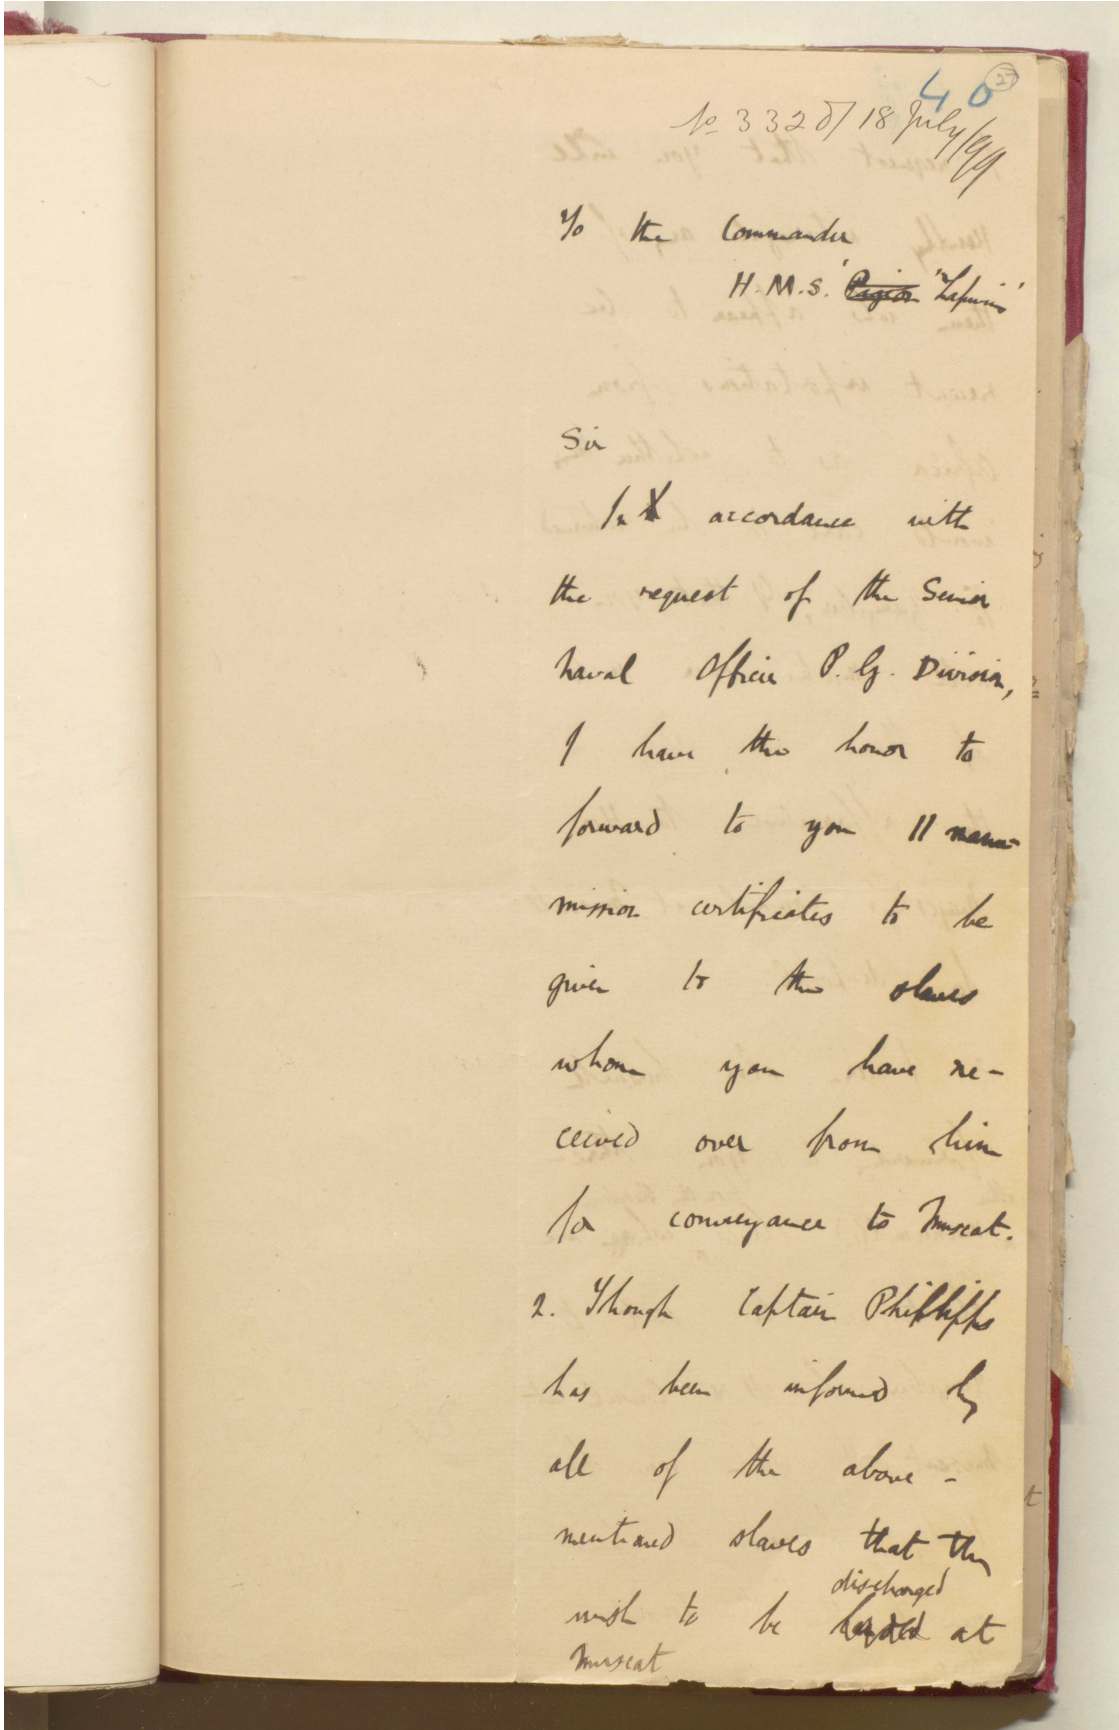 40
27
No 332 of 18 July/99
To the Commander
H.M.S. 'Pigeon "Lapwing'
Sir
In accordance with
the request of the Senior
Naval Officer P. G. Division,
I have the honor to
forward to you 11 manu-
mission certificates to be
given to the slaves
whom you have re-
ceived over from him
for conveyance to Muscat.
2. Though Captain Phillipps
has been informed by
all of the above-
mentioned slaves that they
discharged
wish to be landed at
Muscat